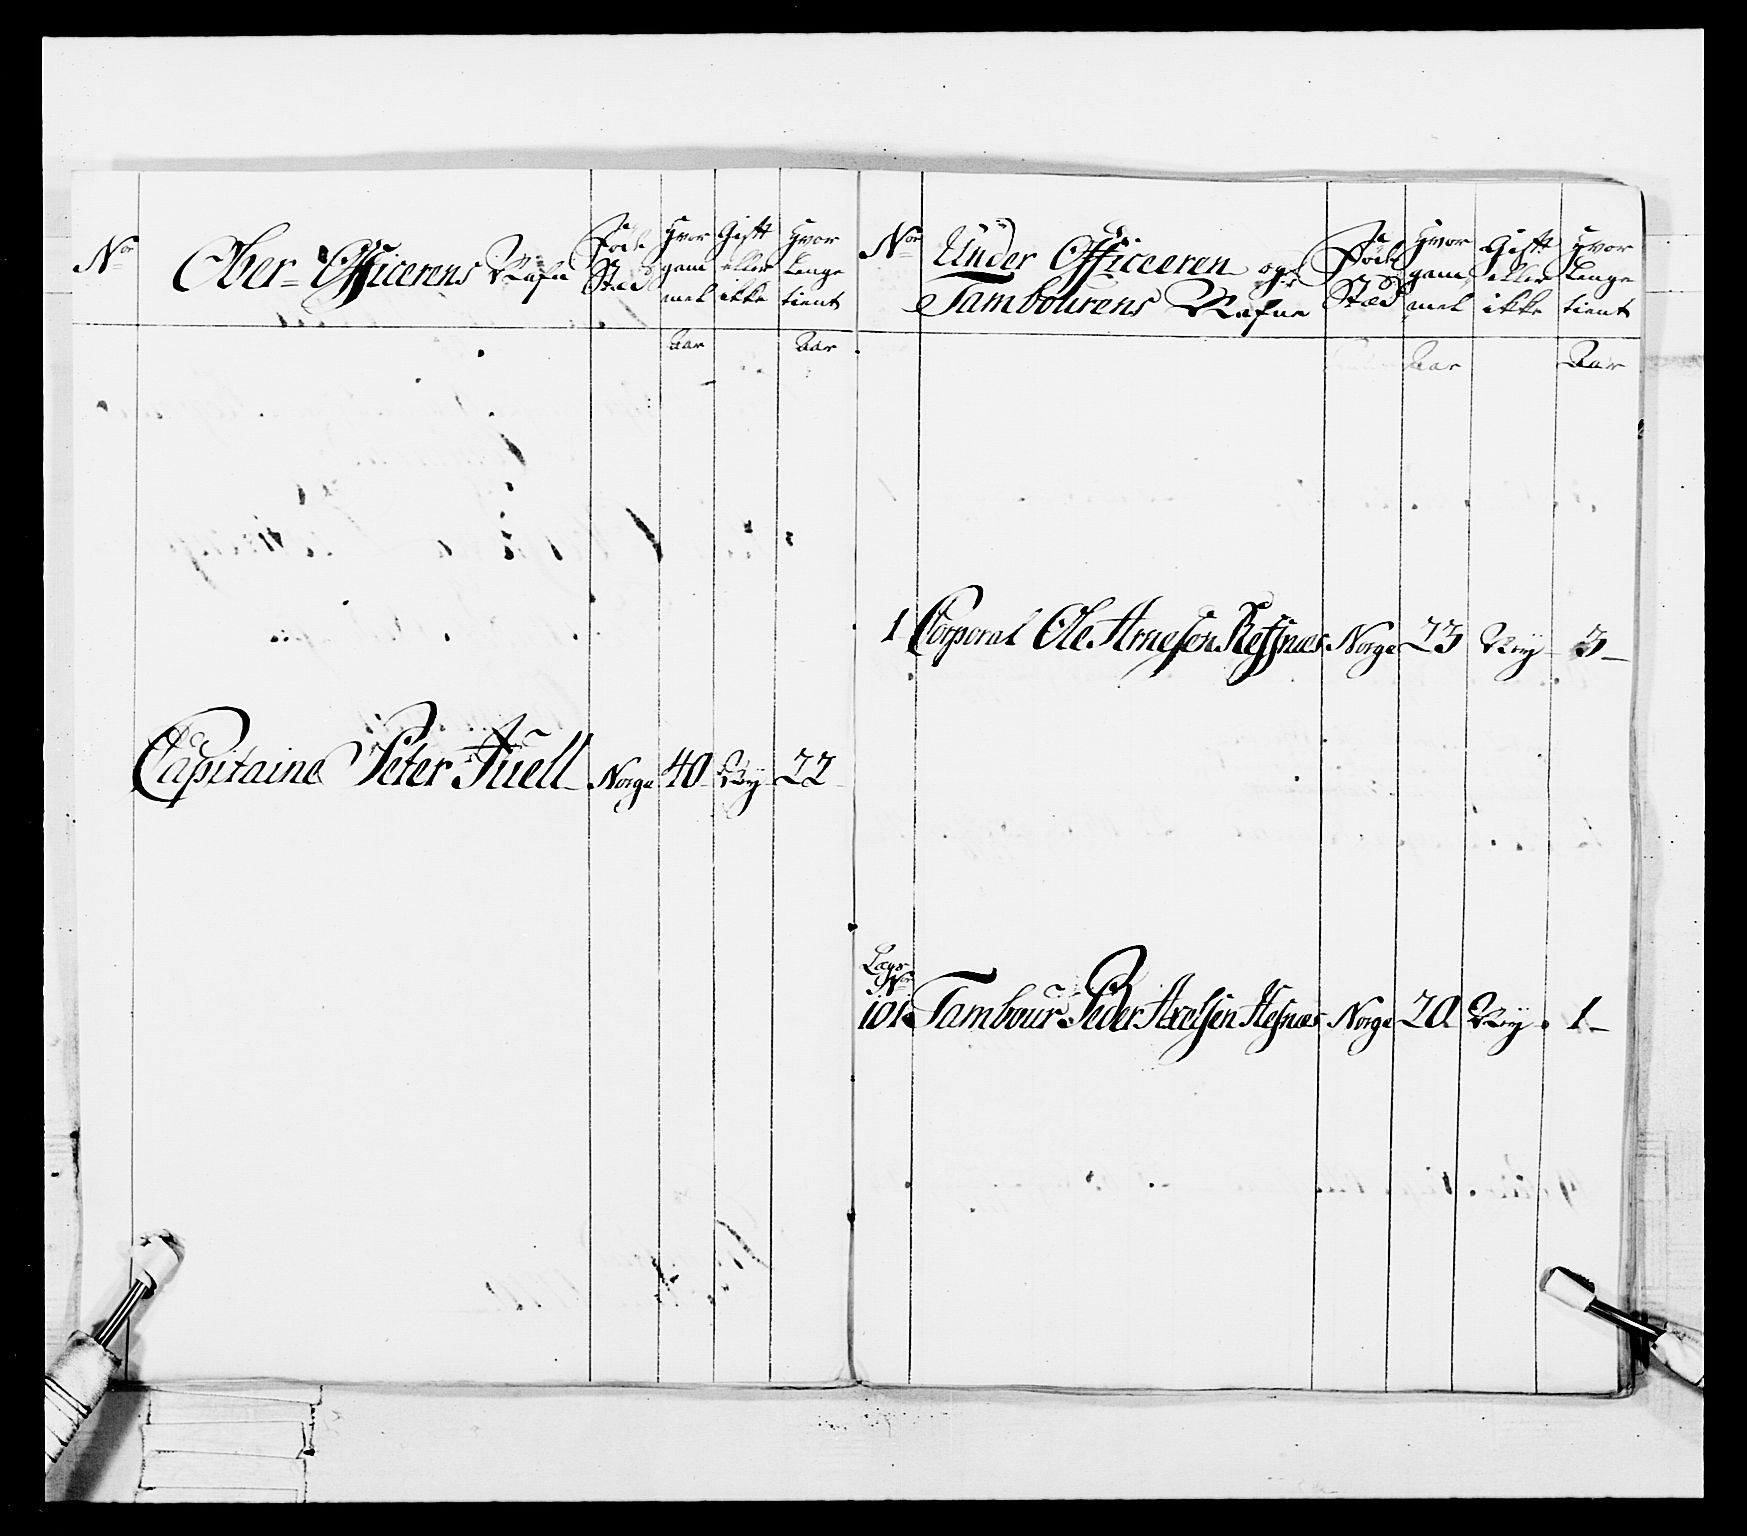 No
Ober=Officerens Nafn
Føde Stæd
Hvor gam mel
Gift eller ikke
Hvor Lenge tient
Aar
Aar
Capitaine Peter Juell Norge 40 Ney 22
No
Under Officeren og
Tambourens Nafne
Føde Stæd
Hvor gam mel
Gift eller ikke
Hvor Lenge tient
Aar
Aar
1 Corporal Ole Arnesen Refsnæs Norge 23 Ney 3
Lægs No
101 Tambour Peder Axelsen Hefnæs Norge 20 Ney 1